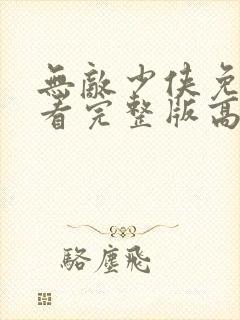 無敵少俠免
看完整版高
駱塵飛